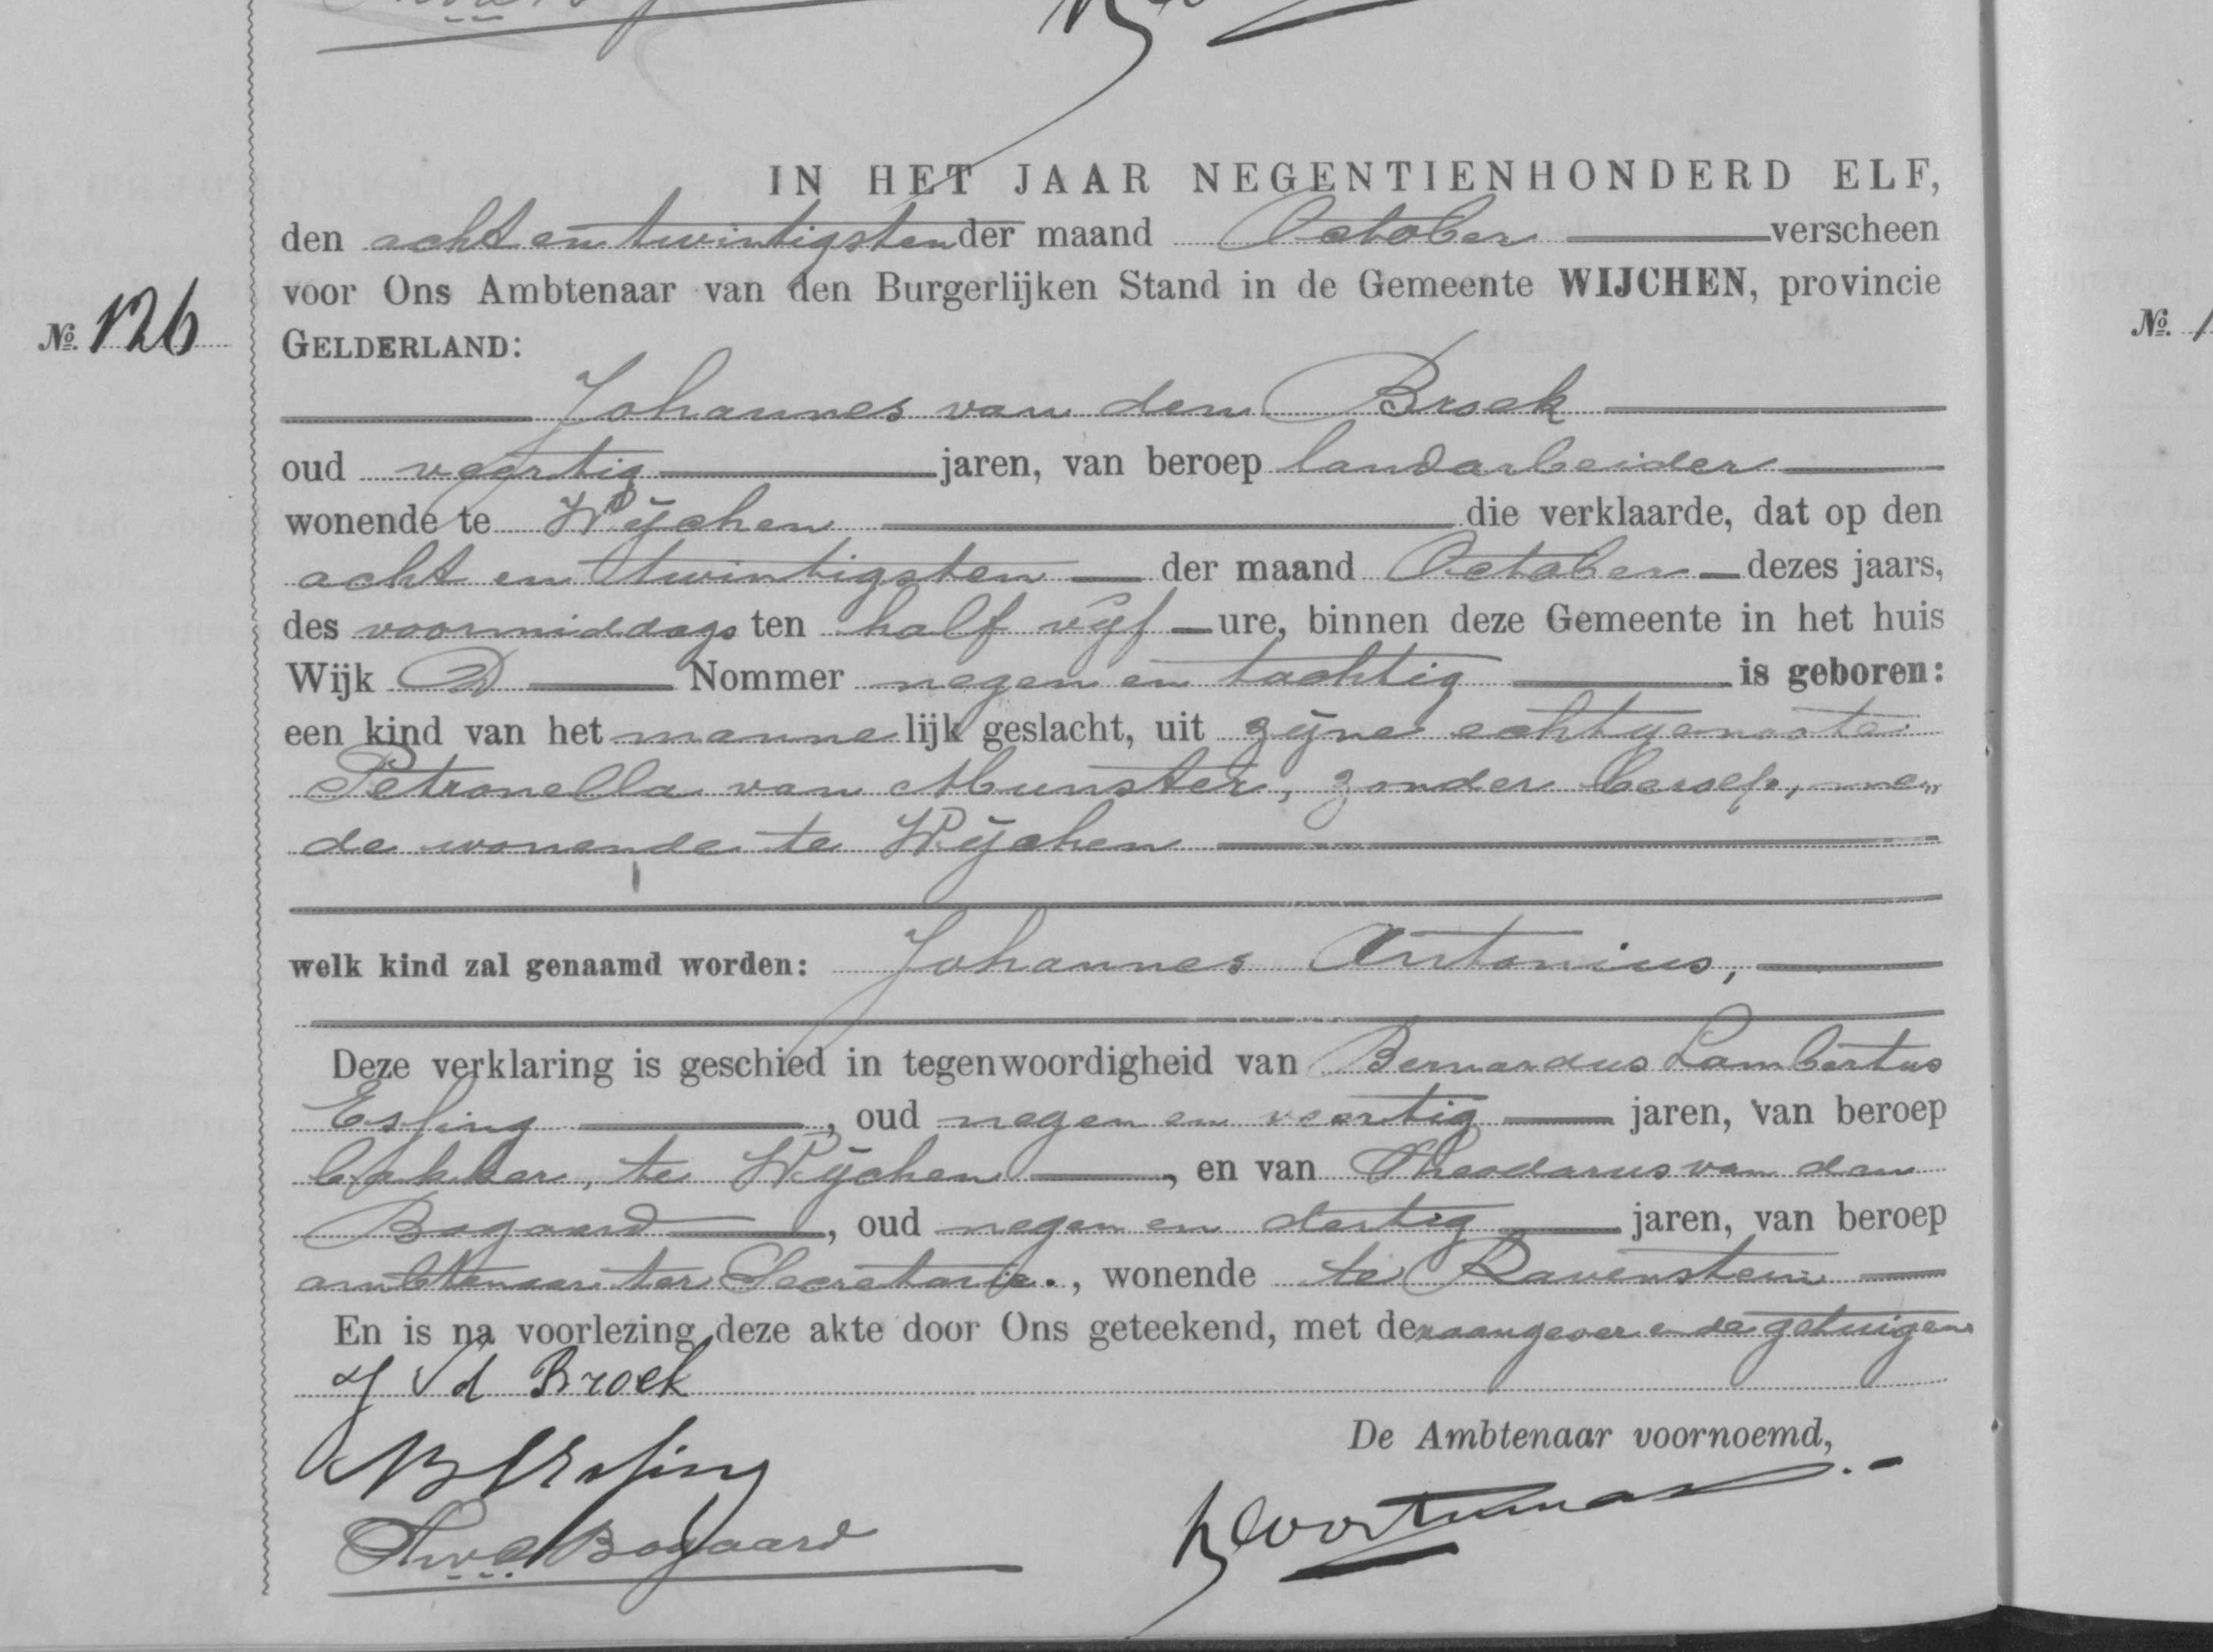 IN HET JAAR NEGENTIENHONDERD ELF,
den acht en twintigsten der maand October verscheen
voor Ons Ambtenaar van den Burgerlijken Stand in de Gemeente WIJCHEN, provincie
No. 126
GELDERLAND:
No.
Johannes van den Broek
oud veertig jaren, van beroep landarbeider
wonende te Wijchen die verklaarde, dat op den
acht en twintigsten der maand October dezes jaars,
des voormiddags ten half vijf ure, binnen deze Gemeente in het huis
Wijk D Nommer negen en tachtig is geboren:
een kind van het mannelijk geslacht, uit zijne echtgenoote
Petronella van Munster, zonder beroep, me„
de wonende te Wijchen
welk kind zal genaamd worden: Johannes Antonius,
Deze verklaring is geschied in tegenwoordigheid van Bernardus Lambertus
Esfing, oud negen en veertig jaren, van beroep
bakker, te Wijchen, en van Theodorus van den
Bogaard, oud negen en dertig jaren, van beroep
ambtenaar ter Secretarie., wonende te Ravenstein
En is na voorlezing deze akte door Ons geteekend, met den aangever en de getuigen
J vd Broek
De Ambtenaar voornoemd,
Th v d Bogaard